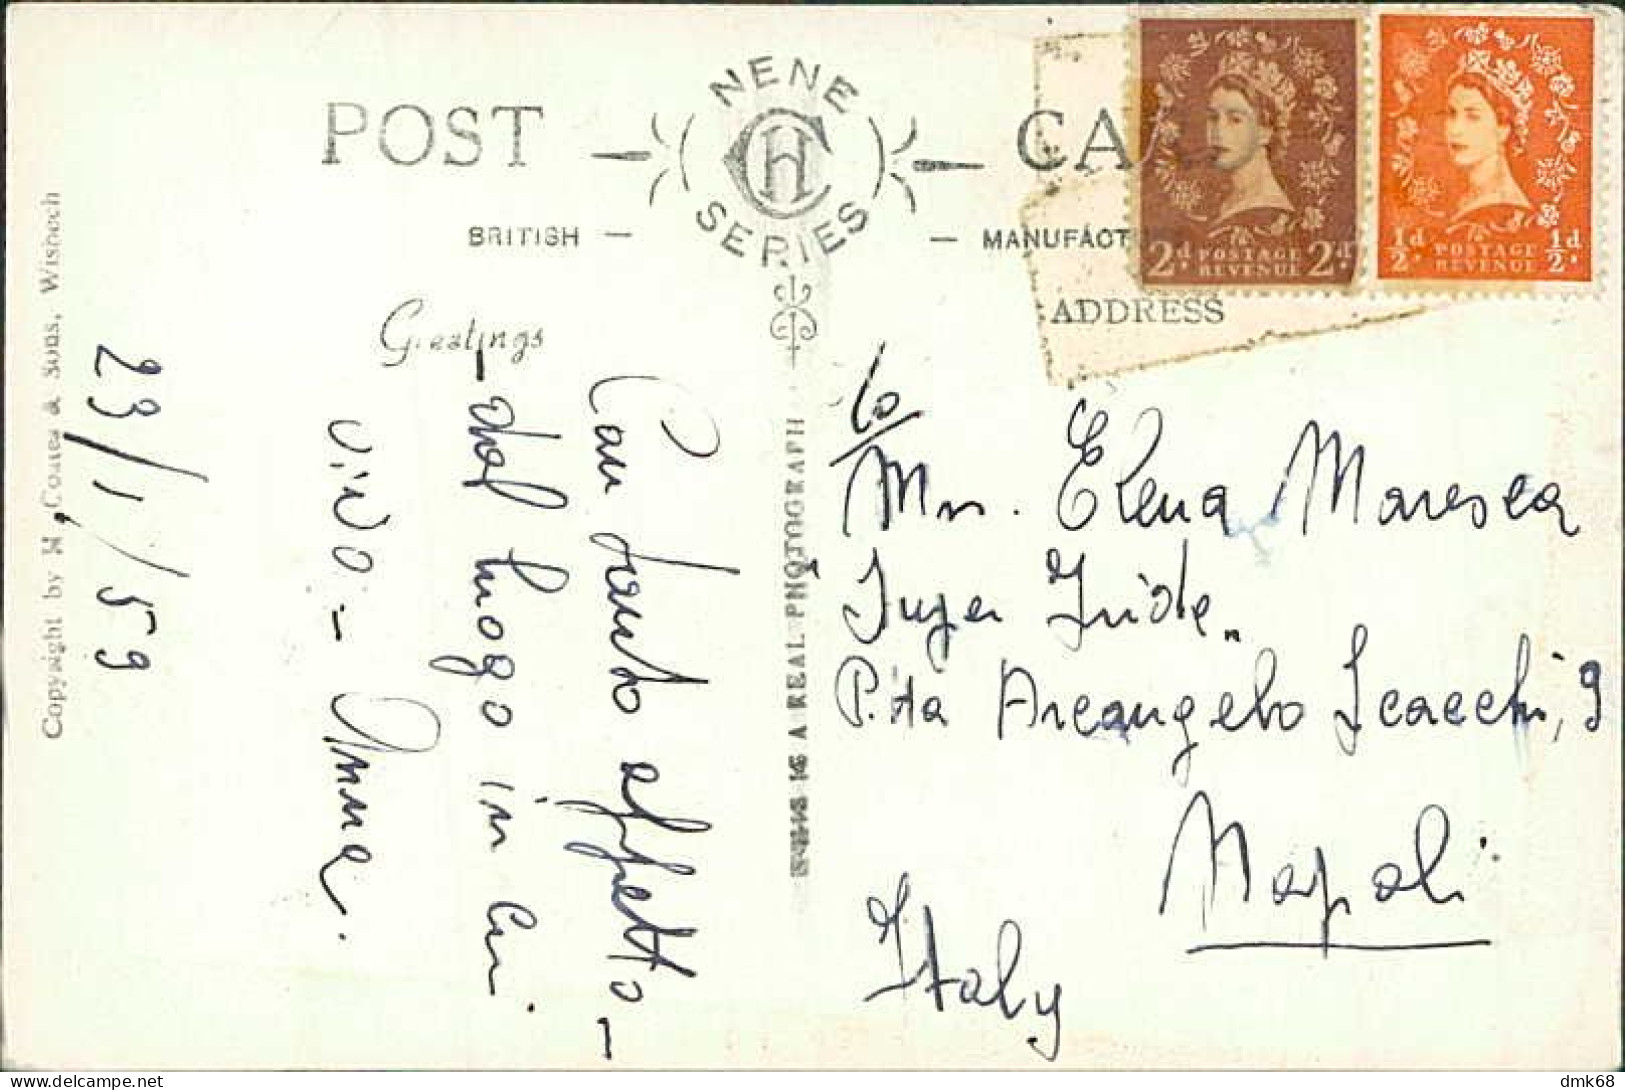 POST CA
NENE SERIES
CH
BRITISH — — MANUFACT
ADDRESS
2d POSTAGE REVENUE 2d
½d POSTAGE REVENUE ½d
Greetings
Con tanto affetto —
— dal luogo in cui
vivo. — Anna.
23/1/59
Copyright by H. Coates & Sons, Wisbech
THIS IS A REAL PHOTOGRAPH
Elena Maresca
Iride"
P.tta Arcangelo Scacchi, 9
Napoli
Italy
dmk68